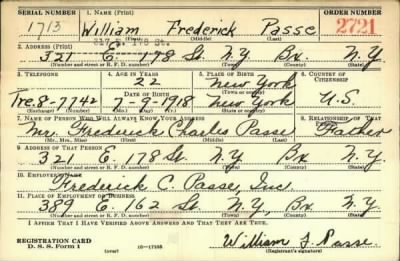 SERIAL NUMBER 1. NAME (Print) ORDER NUMBER
1713 William Frederick Passe 2721
(First) (Middle) (Last)
2. ADDRESS (Print)
321 E. 178 St. N.Y Bx. N.Y.
(Number and street or R. F. D. number) (Town) (County) (State)
3. TELEPHONE 4. AGE IN YEARS 5. PLACE OF BIRTH 6. COUNTRY OF CITIZENSHIP
22 New York
Tre. 8-7742 DATE OF BIRTH (Town or county) U.S.
7-9-1918 New York
(Exchange) (No.) (Mo.) (Day) (Yr.) (State or country)
7. NAME OF PERSON WHO WILL ALWAYS KNOW YOUR ADDRESS 8. RELATIONSHIP OF THAT PERSON
Mr. Frederick Charles Passe Father
(Mr., Mrs., Miss) (First) (Middle) (Last)
9. ADDRESS OF THAT PERSON
321 E. 178 St. N.Y Bx. N.Y.
(Number and street or R. F. D. number) (Town) (County) (State)
10. EMPLOYER'S NAME
Frederick C. Passe, Inc.
11. PLACE OF EMPLOYMENT OR BUSINESS
389 E. 162 St. N.Y, Bx. N.Y.
(Number and street or R. F. D. number) (Town) (County) (State)
I AFFIRM THAT I HAVE VERIFIED ABOVE ANSWERS AND THAT THEY ARE TRUE.
REGISTRATION CARD
D. S. S. Form 1 (over) 16—17105 William F. Passe.
(Registrant's signature)